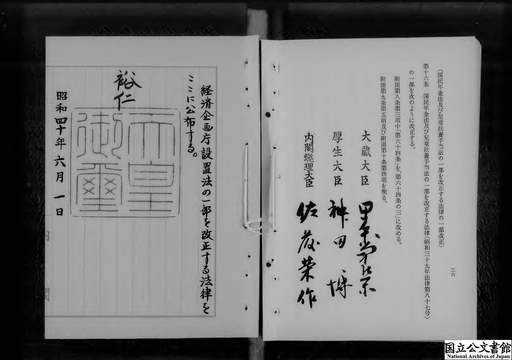 二八
(国民年金法及び児童扶養手当法の一部を改正する法律の一部改正)
第十六条 国民年金法及び児童扶養手当法の一部を改正する法律(昭和三十九年法律第八十七号)
の一部を次のように改正する。
附則第八条第三項中「第六十四条」を「第六十四条の三」に改める。
附則第九条第五項及び附則第十条第四項を削る。
大蔵大臣 田中角栄
厚生大臣 神田博
内閣総理大臣 佐藤榮作
経済企画庁設置法の一部を改正する法律を
ここに公布する。
裕仁
天皇御璽
昭和四十年六月一日
国立公文書館
National Archives of Japan